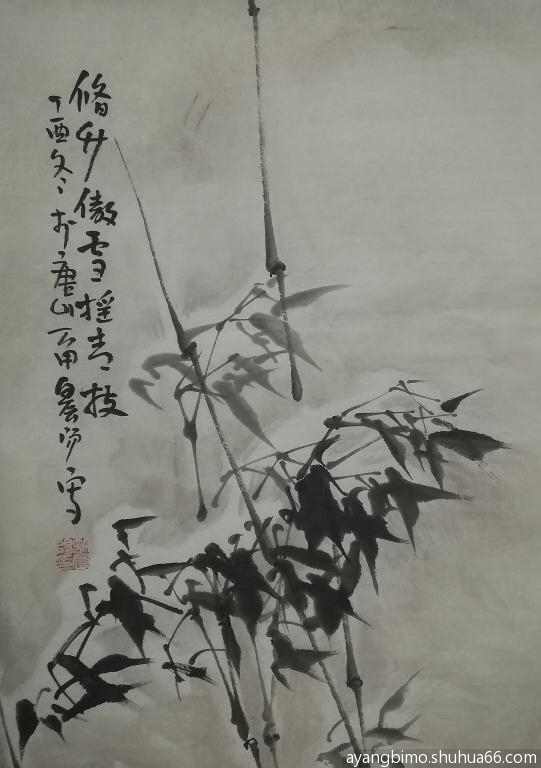 脩竹傲雪摇青枝
丁酉冬於唐山晨阳写
ayangbimo.shuhua66.com